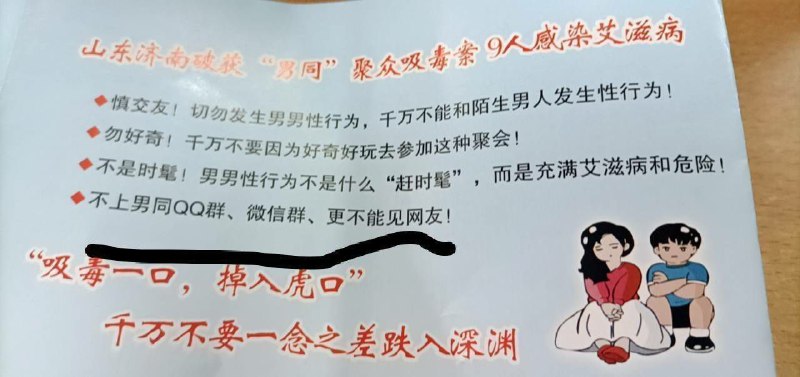 山东济南破获“男同”聚众吸毒案 9人感染艾滋病
◆慎交友！切勿发生男男性行为，千万不能和陌生男人发生性行为！
◆勿好奇！千万不要因为好奇好玩去参加这种聚会！
◆不是时髦！男男性行为不是什么“赶时髦”，而是充满艾滋病和危险！
◆不上男同QQ群、微信群、更不能见网友！
“吸毒一口，掉入虎口”
千万不要一念之差跌入深渊